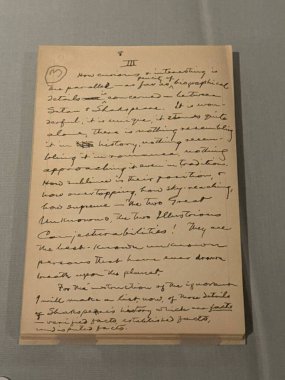 III
How curious & interesting is
the parallel — as far as poverty of biographical
details is concerned — between
Satan & Shakespeare. It is won-
derful, it is unique, it stands quite
alone, there is nothing resembling
it in history, nothing resem-
bling it in romance, nothing
approaching it even in tradition.
How sublime is their position, &
how over-topping, how sky-reaching,
how supreme — the two Great
Unknowns, the two Illustrious
Conjecturabilities! They are
the best-known unknown
persons that have ever drawn
breath upon the planet.
For the instruction of the ignorant
I will make a list, now, of those details
of Shakspeare's history which are facts
— verified facts, established facts,
undisputed facts.